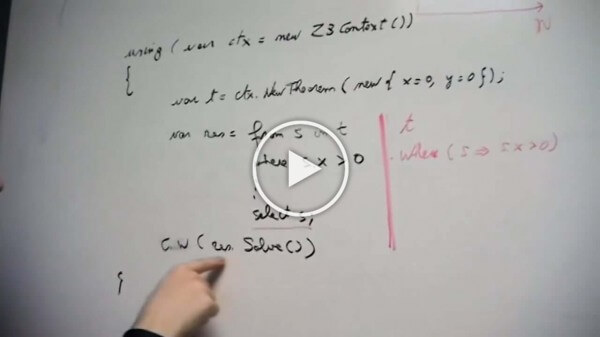 using (var ctx = new Z3Context())
{
var t = ctx.NewTheorem (new { x=0, y=0 });
var res = from s in t
where s.x > 0
:
select s;
C.W (res.Solve())
}
t
.Where (s => s.x>0)